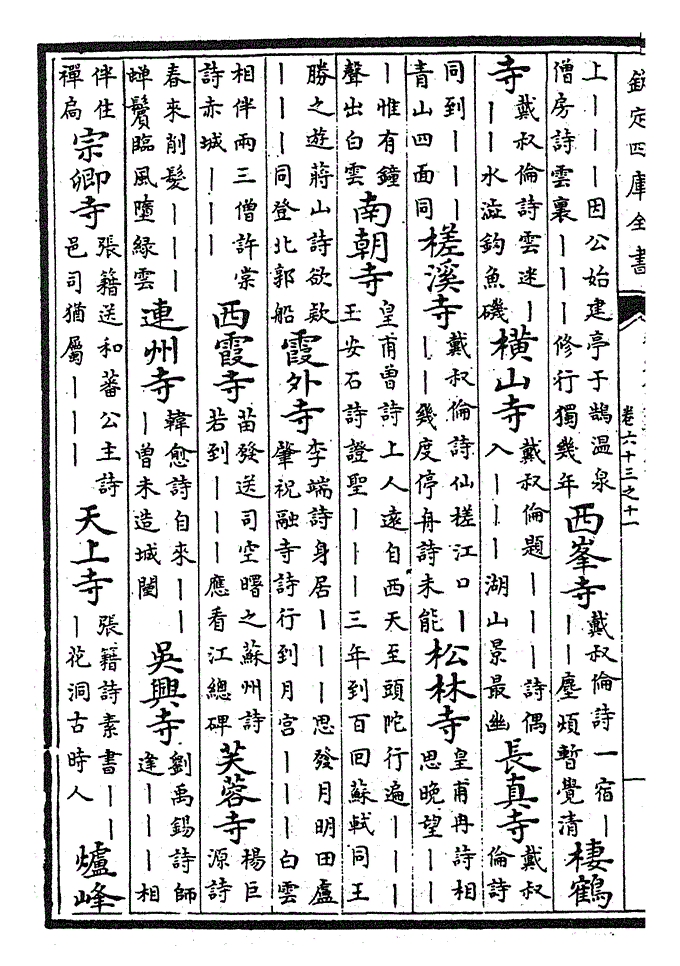 欽定四庫全書
卷六十三之十一
上｜｜｜｜因公始建亭于鵲温泉
僧房詩雲裏｜｜｜修行獨幾年
西峯寺
戴叔倫詩一宿｜
｜｜塵煩暫覺清
棲鶴
寺
戴叔倫詩雲迷｜
｜｜水溢鈎魚磯
橫山寺
戴叔倫題｜｜｜｜詩偶
入｜｜｜湖山景最幽
長真寺
戴叔
倫詩
同到｜｜｜｜
青山四面同
槎溪寺
戴叔倫詩仙槎江口｜
｜｜幾度停舟詩未能
松林寺
皇甫冉詩相
思晚望｜｜
｜惟有鐘
聲出白雲
南朝寺
皇甫曾詩上人遠自西天至頭陀行遍｜｜｜
王安石詩證聖｜｜｜三年到百回蘇軾同王
勝之遊蔣山詩欲款
｜｜｜｜同登北郭船
霞外寺
李端詩身居｜｜｜思發月明田盧
肇祝融寺詩行到月宫｜｜｜白雲
相伴兩三僧許棠
詩赤城｜｜｜
西霞寺
苗發送司空曙之蘇州詩
若到｜｜｜應看江總碑
芙蓉寺
楊巨
源詩
春來削髮｜｜｜｜
蟬鬢臨風墮緑雲
連州寺
韓愈詩自來｜｜
｜曾未造城闉
吳興寺
劉禹錫詩師
逢｜｜｜相
伴住
禪扃
宗卿寺
張籍送和蕃公主詩
邑司猶屬｜｜｜
天上寺
張籍詩素書｜｜
｜花洞古時人
爐峰